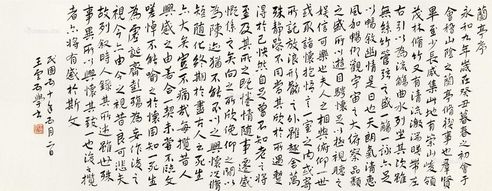 蘭亭序
永和九年歲在癸丑暮春之初會于
會稽山陰之蘭亭脩禊事也群賢
畢至少長咸集此地有崇山峻領
茂林脩竹又有清流激湍暎帶左
右引以為流觴曲水列坐其次雖
無絲竹管弦之盛一觴一詠亦足
以暢敘幽情是日也天朗氣清惠
風和暢仰觀宇宙之大俯察品類
之盛所以遊目騁懷足以極視聽之
娛信可樂也夫人之相與俯仰一世
或取諸懷抱悟言一室之內或因寄
所託放浪形骸之外雖趣舍萬
殊靜躁不同當其欣於所遇暫
得於己快然自足曾不知老之將
至及其所之既倦情隨事遷感
慨係之矣向之所欣俛仰之間以
為陳迹猶不能不以之興懷況脩
短隨化終期於盡古人云死生
亦大矣豈不痛哉每攬昔人
興感之由若合一契未嘗不臨文
嗟悼不能喻之於懷固知一死生
為虛誕齊彭殤為妄作後之
視今亦由今之視昔良可悲夫
故列敘時人錄其所述雖世殊
事異所以興懷其致一也後之攬
者亦將有感於斯文
民國五十年五月二日
王雲五學書